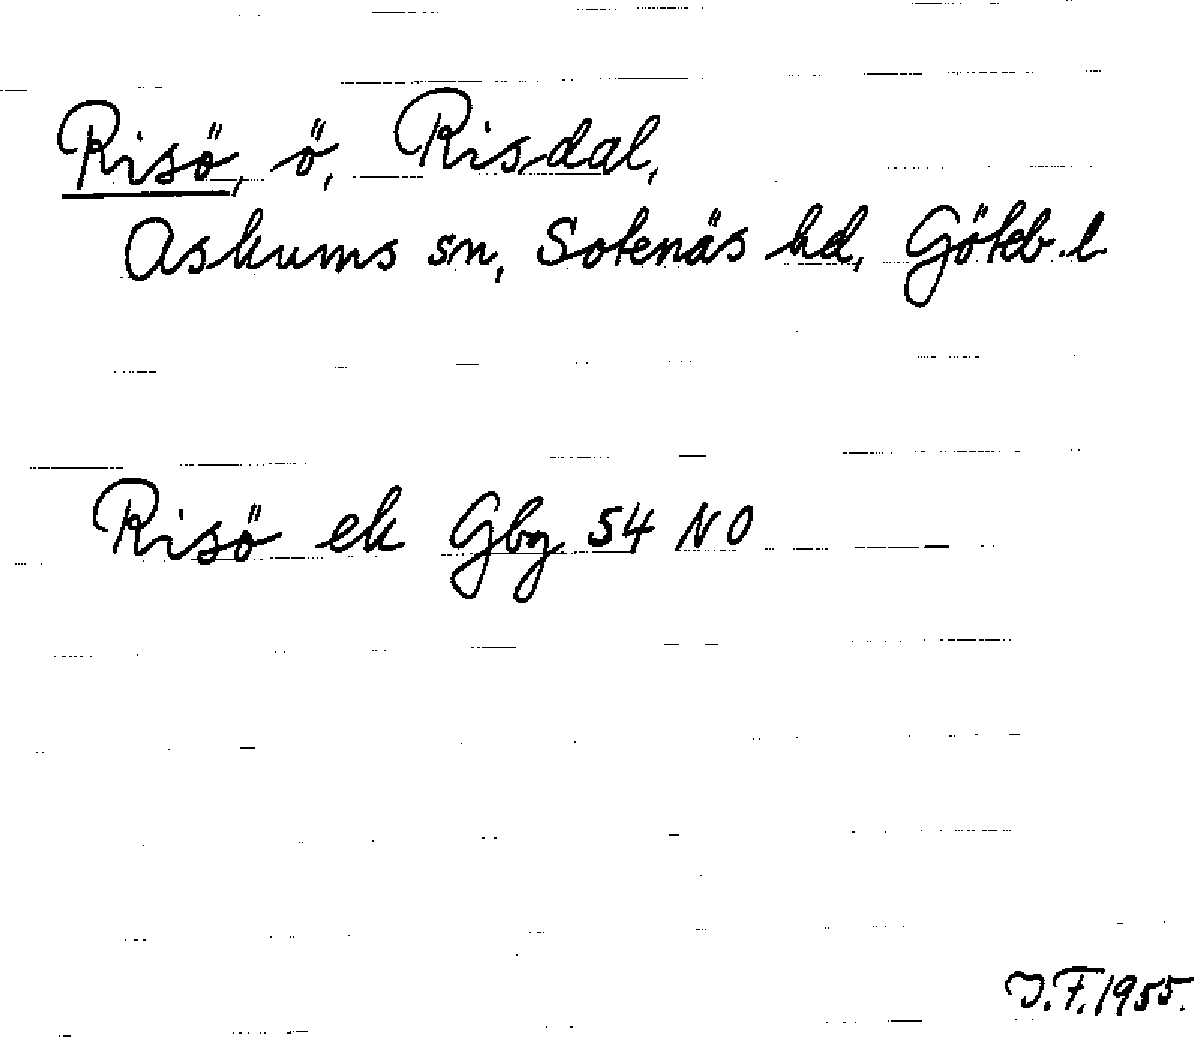 Risö, ö, Risdal,
Askums sn, Sotenäs hd, Göteb. l
Risö ek Gbg 54 NO
J.F. 1955.